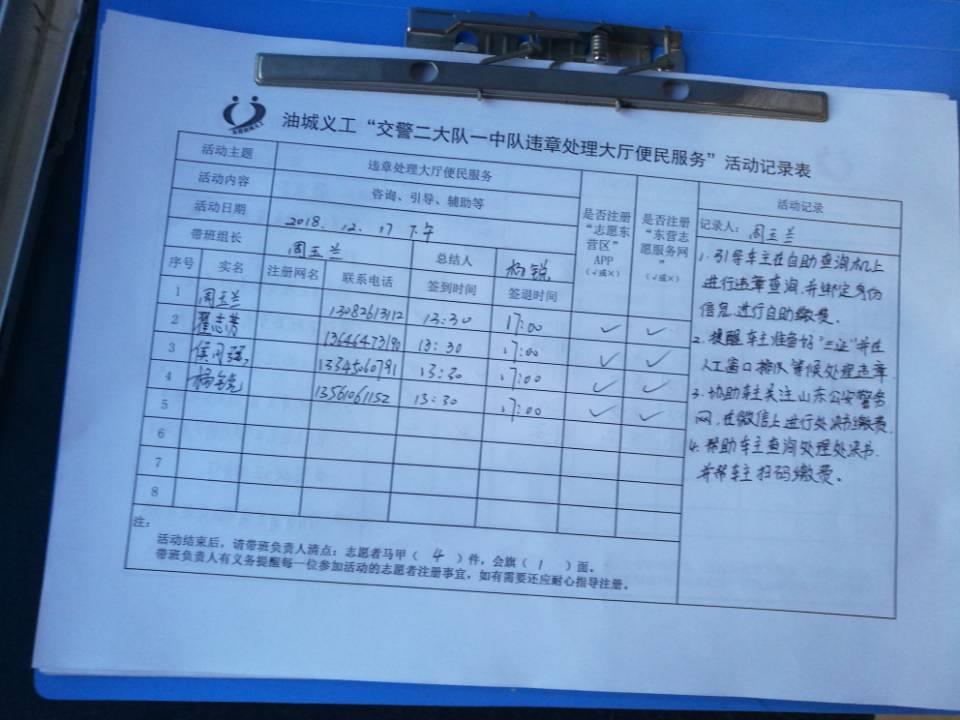 油城义工“交警二大队一中队违章处理大厅便民服务”活动记录表
活动主题 违章处理大厅便民服务
活动内容 咨询、引导、辅助等
活动日期 2018.12.17 下午
带班组长 周玉兰 总结人 杨锐
是否注册“志愿东营区”APP（√或×）
是否注册“东营志愿服务网”（√或×）
序号 实名 注册网名 联系电话 签到时间 签退时间
1 周玉兰 13082613112 13:30 17:00 ✓ ✓
2 翟志芳 13646473190 13:30 17:00 ✓ ✓
3 侯 13345060791 13:30 17:00 ✓ ✓
4 杨锐 13561061152 13:30 17:00 ✓ ✓
5
6
7
8
活动记录
记录人：周玉兰
1. 引导车主在自助查询机上
进行违章查询，并绑定身份
信息，进行自助缴费。
2. 提醒车主准备好“三证”并在
人工窗口排队等候处理违章
3. 协助车主关注山东公安警务
网，在微信上进行处决书缴费
4. 帮助车主查询处理处决书
并帮车主扫码缴费。
注：
活动结束后，请带班负责人清点：志愿者马甲（ 4 ）件，会旗（ 1 ）面。
带班负责人有义务提醒每一位参加活动的志愿者注册事宜，如有需要还应耐心指导注册。